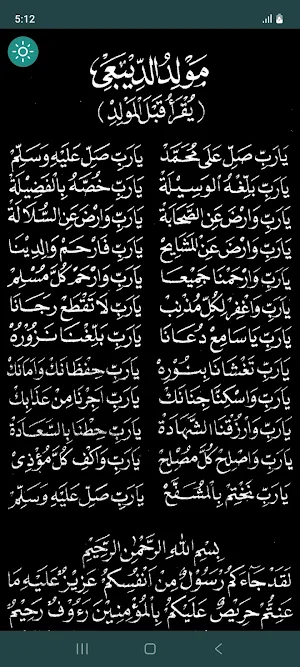 5:12
مَوْلِدُ الدِّيْبَعِي
(يُقْرَأُ قَبْلَ المَوْلِدْ)
يَارَبِّ صَلِّ عَلَى مُحَمَّدْ يَارَبِّ صَلِّ عَلَيْهِ وَسَلِّمْ
يَارَبِّ بَلِّغْهُ الْوَسِيْلَةْ يَارَبِّ خُصَّهُ بِالْفَضِيْلَةْ
يَارَبِّ وَارْضَ عَنِ الصَّحَابَةْ يَارَبِّ وَارْضَ عَنِ السُّلَالَةْ
يَارَبِّ وَارْضَ عَنِ الْمَشَايِخْ يَارَبِّ فَارْحَمْ وَالِدِيْنَا
يَارَبِّ وَارْحَمْنَا جَمِيْعًا يَارَبِّ وَارْحَمْ كُلَّ مُسْلِمْ
يَارَبِّ وَاغْفِرْ لِكُلِّ مُذْنِبْ يَارَبِّ لَا تَقْطَعْ رَجَانَا
يَارَبِّ يَاسَامِعْ دُعَانَا يَارَبِّ بَلِّغْنَا نَزُوْرُهْ
يَارَبِّ تَغْشَانَا بِنُوْرِهْ يَارَبِّ حِفْظَانَكْ وَامَانَكْ
يَارَبِّ وَاسْكِنَّا جِنَانَكْ يَارَبِّ اَجِرْنَا مِنْ عَذَابِكْ
يَارَبِّ وَارْزُقْنَا الشَّهَادَةْ يَارَبِّ حِطْنَا بِالسَّعَادَةْ
يَارَبِّ وَاصْلِحْ كُلَّ مُصْلِحْ يَارَبِّ وَاكْفِ كُلَّ مُؤْذِيْ
يَارَبِّ نَخْتِمْ بِالْمُشَفَّعْ يَارَبِّ صَلِّ عَلَيْهِ وَسَلِّمْ
بِسْمِ اللهِ الرَّحْمٰنِ الرَّحِيْمِ
لَقَدْ جَاءَكُمْ رَسُوْلٌ مِنْ اَنْفُسِكُمْ عَزِيْزٌ عَلَيْهِ مَا
عَنِتُّمْ حَرِيْصٌ عَلَيْكُمْ بِالْمُؤْمِنِيْنَ رَءُوْفٌ رَحِيْمٌ